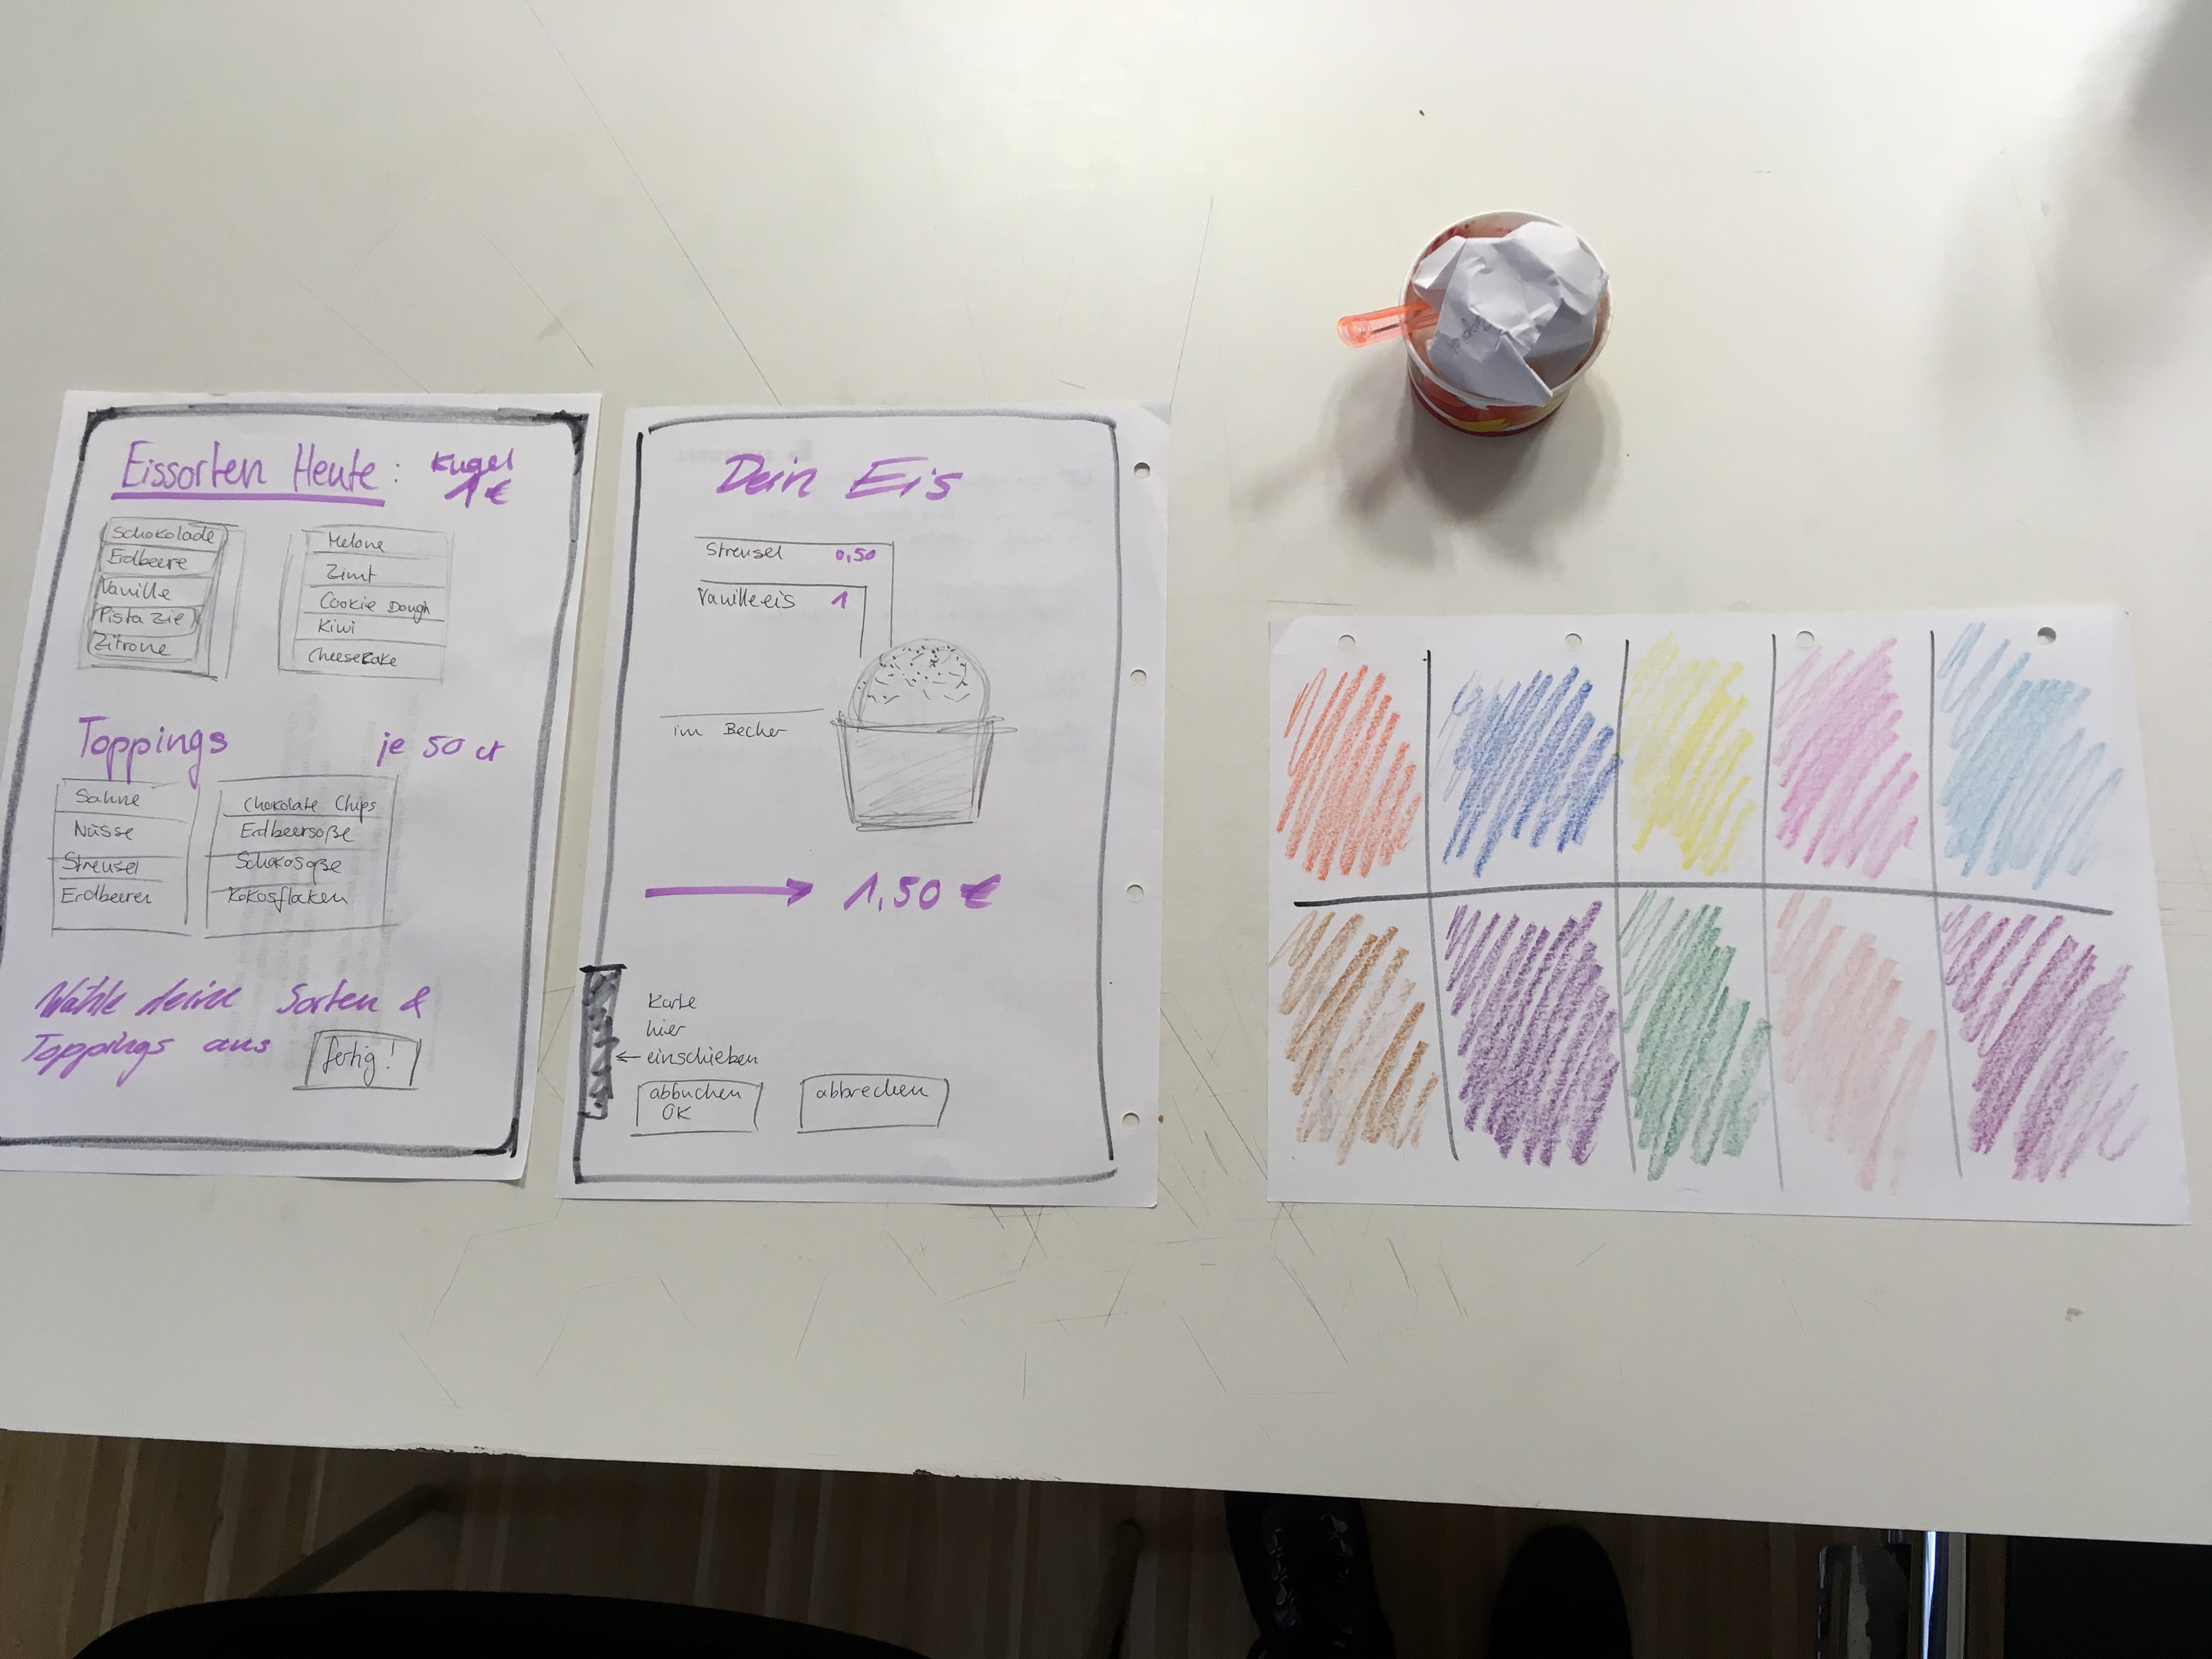 Eissorten Heute: Kugel
1 €
Schokolade
Erdbeere
Vanille
Pistazie
Zitrone
Melone
Zimt
Cookie Dough
Kiwi
Cheesecake
Toppings je 50 ct
Sahne
Nüsse
Streusel
Erdbeeren
Chokolate Chips
Erdbeersoße
Schokosoße
Kokosflocken
Wähle deine Sorten &
Toppings aus
fertig!
Dein Eis
Streusel 0,50
Vanilleeis 1
im Becher
1,50 €
Karte
hier
einschieben
abbuchen
OK
abbrechen